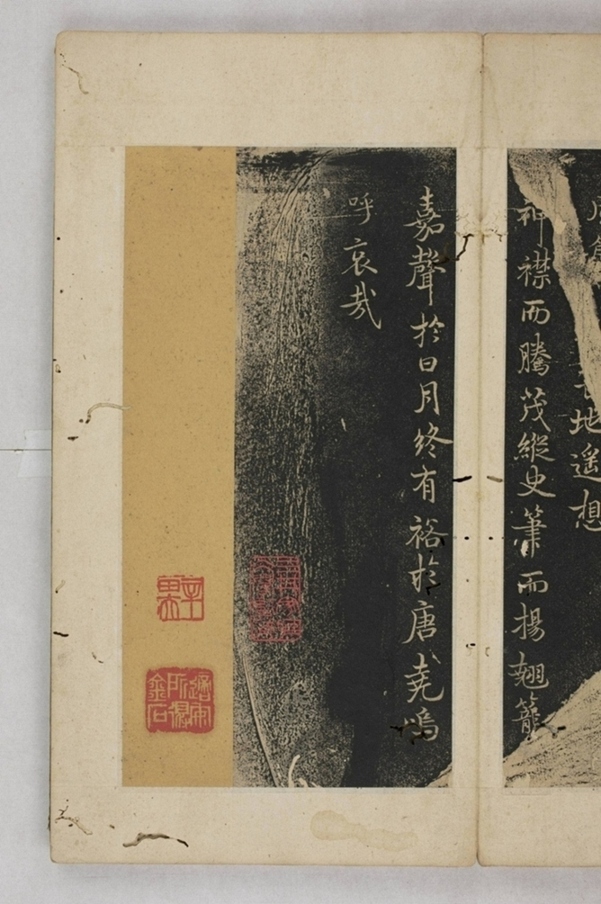 地遥想
神襟而騰茂縱史筆而揚翹籠
嘉聲於日月終有裕於唐堯嗚
呼哀哉
所得
金石